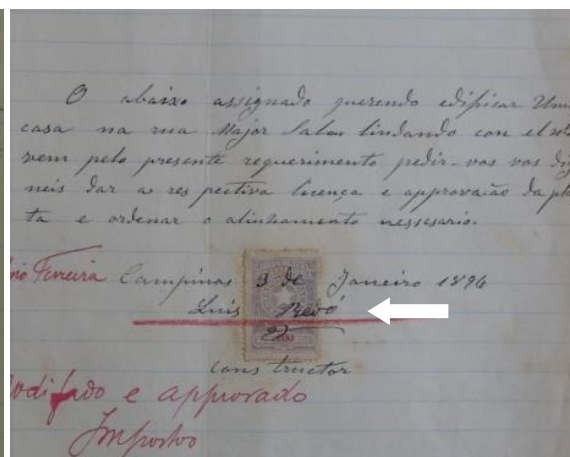 O abaixo assignado querendo edificar Uma
casa na rua Major Solon lindando con el
vem pelo presente requerimento pedir-vos vos dig
neis dar a res pectiva licença e approvaão da pla
ta e ordenar o alinhamento nessesario.
Ferreira Campinas 3 de Janeiro 1896
Luis
constructor
e approvado
Impostos